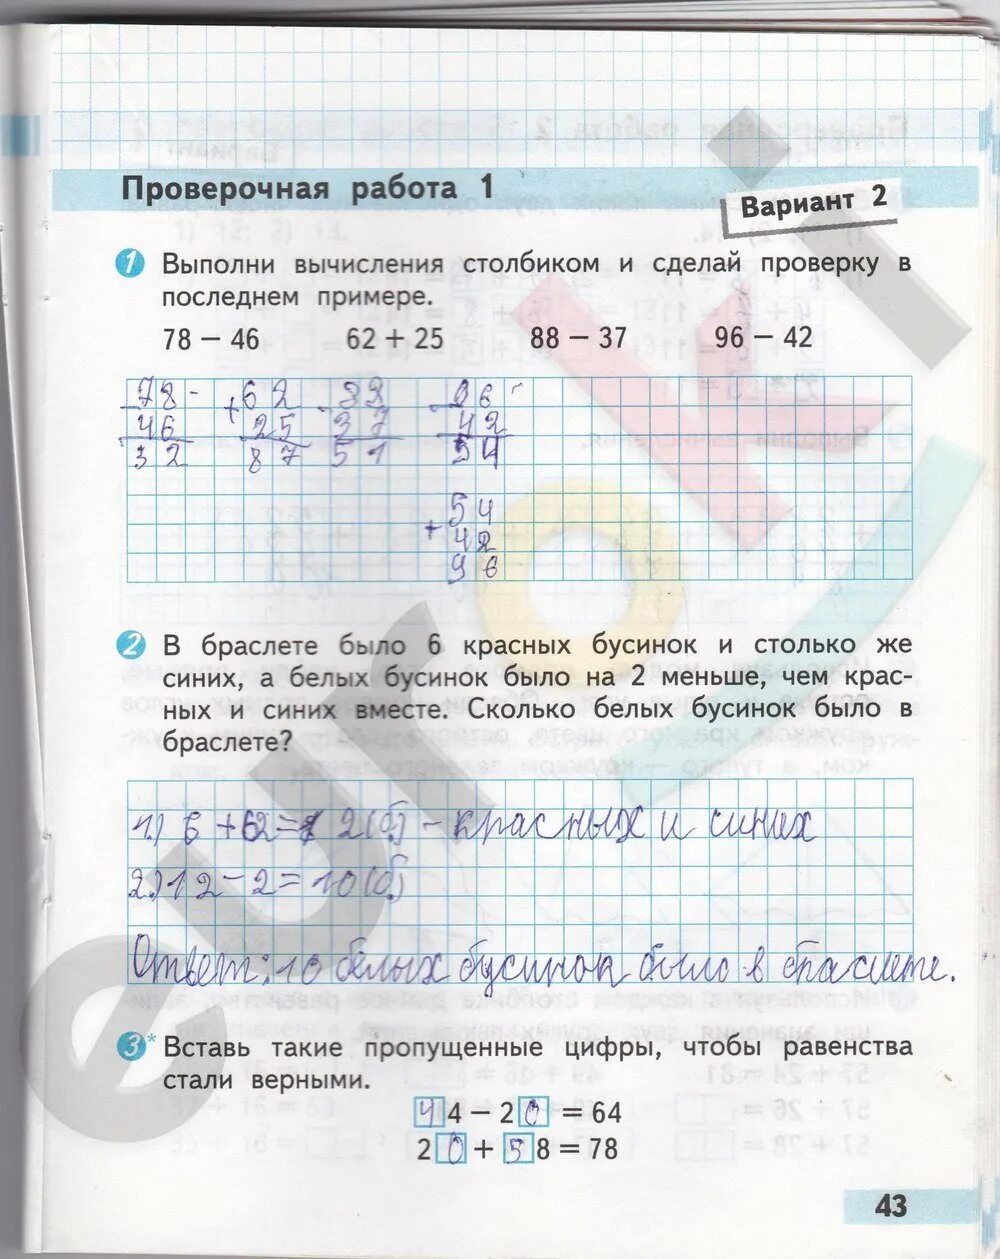 Проверочная работа 1
Вариант 2
1 Выполни вычисления столбиком и сделай проверку в
последнем примере.
78 − 46 62 + 25 88 − 37 96 − 42
78 62 88 96
− 46 + 25 − 37 − 42
32 87 51 54
54
+ 42
96
2 В браслете было 6 красных бусинок и столько же
синих, а белых бусинок было на 2 меньше, чем крас-
ных и синих вместе. Сколько белых бусинок было в
браслете?
1.) 6 + 62 = 12(б) - красных и синих
2.) 12 - 2 = 10(б)
Ответ: 10 белых бусинок было в браслете.
3* Вставь такие пропущенные цифры, чтобы равенства
стали верными.
4 4 − 2 0 = 64
2 0 + 5 8 = 78
43